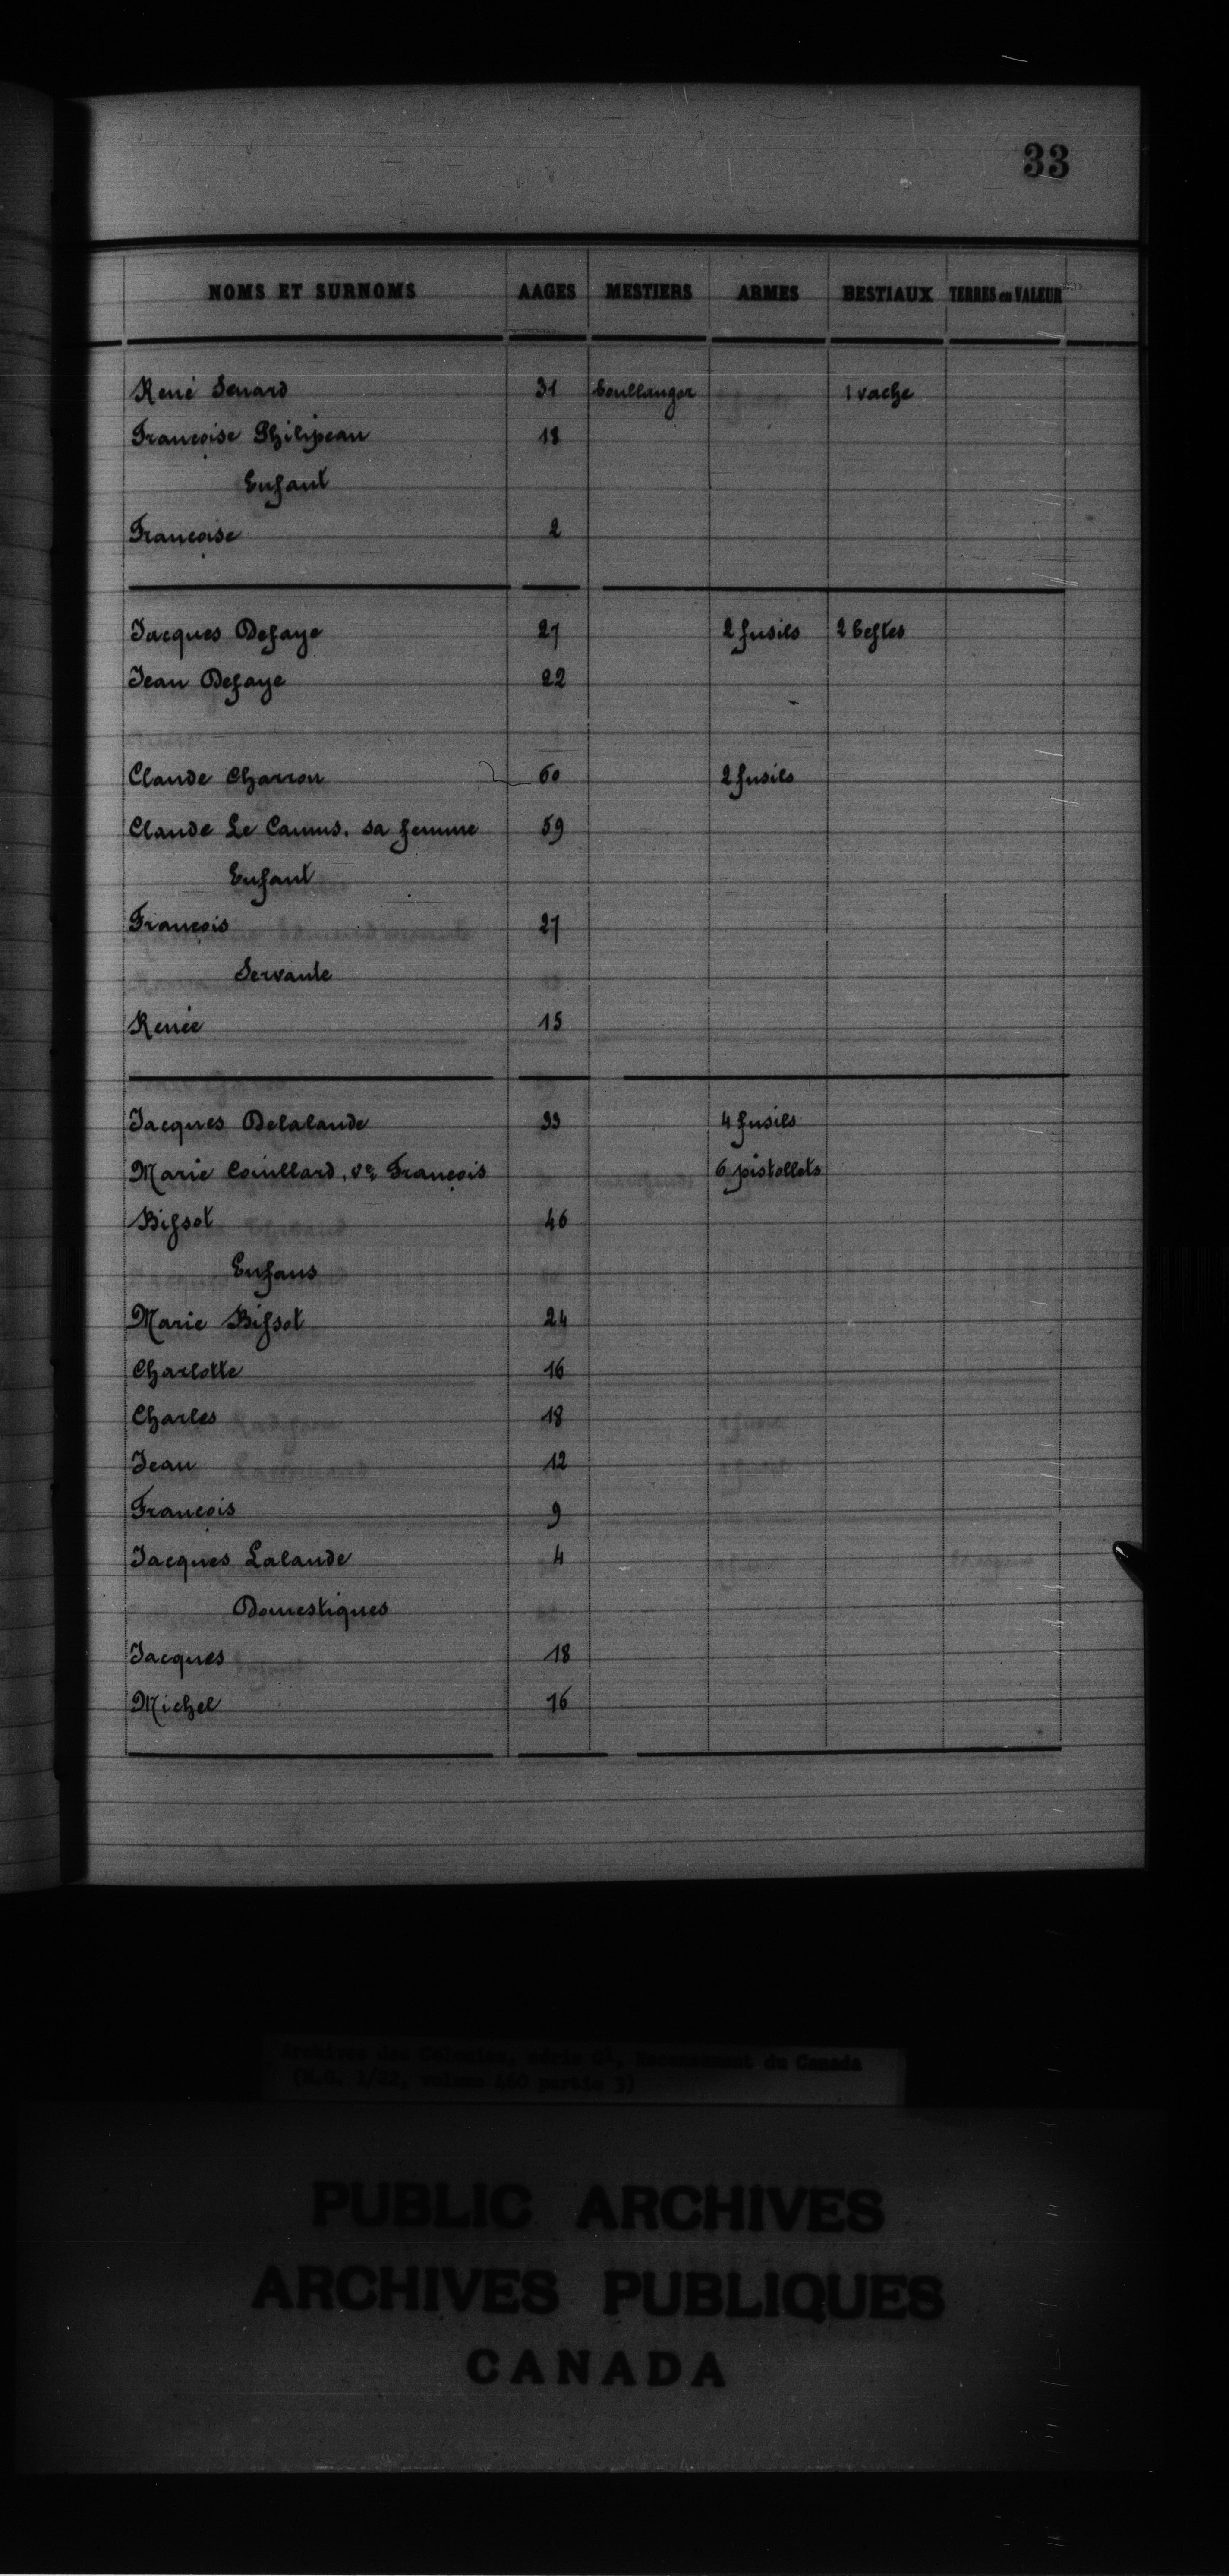 33
NOMS ET SURNOMS AAGES MESTIERS ARMES BESTIAUX TERRES en VALEUR
René Senard 31 boullanger 1 vache
Françoise Philipeau 18
Enfant
Françoise 2
Jacques Defaye 27 2 fusils 2 bestes
Jean Defaye 22
Claude Charron 60 2 fusils
Claude Le Camus, sa femme 59
Enfant
François 27
Servante
Renée 15
Jacques Delalande 33 4 fusils
Marie Couillard, ve. François 6 pistollets
Bissot 46
Enfans
Marie Bissot 24
Charlotte 16
Charles 18
Jean 12
François 9
Jacques Lalande 4
Domestiques
Jacques 18
Michel 16
Archives des Colonies, série G1, Recensement du Canada
(M.G. 1/22, volume 460 partie 3)
PUBLIC ARCHIVES
ARCHIVES PUBLIQUES
CANADA